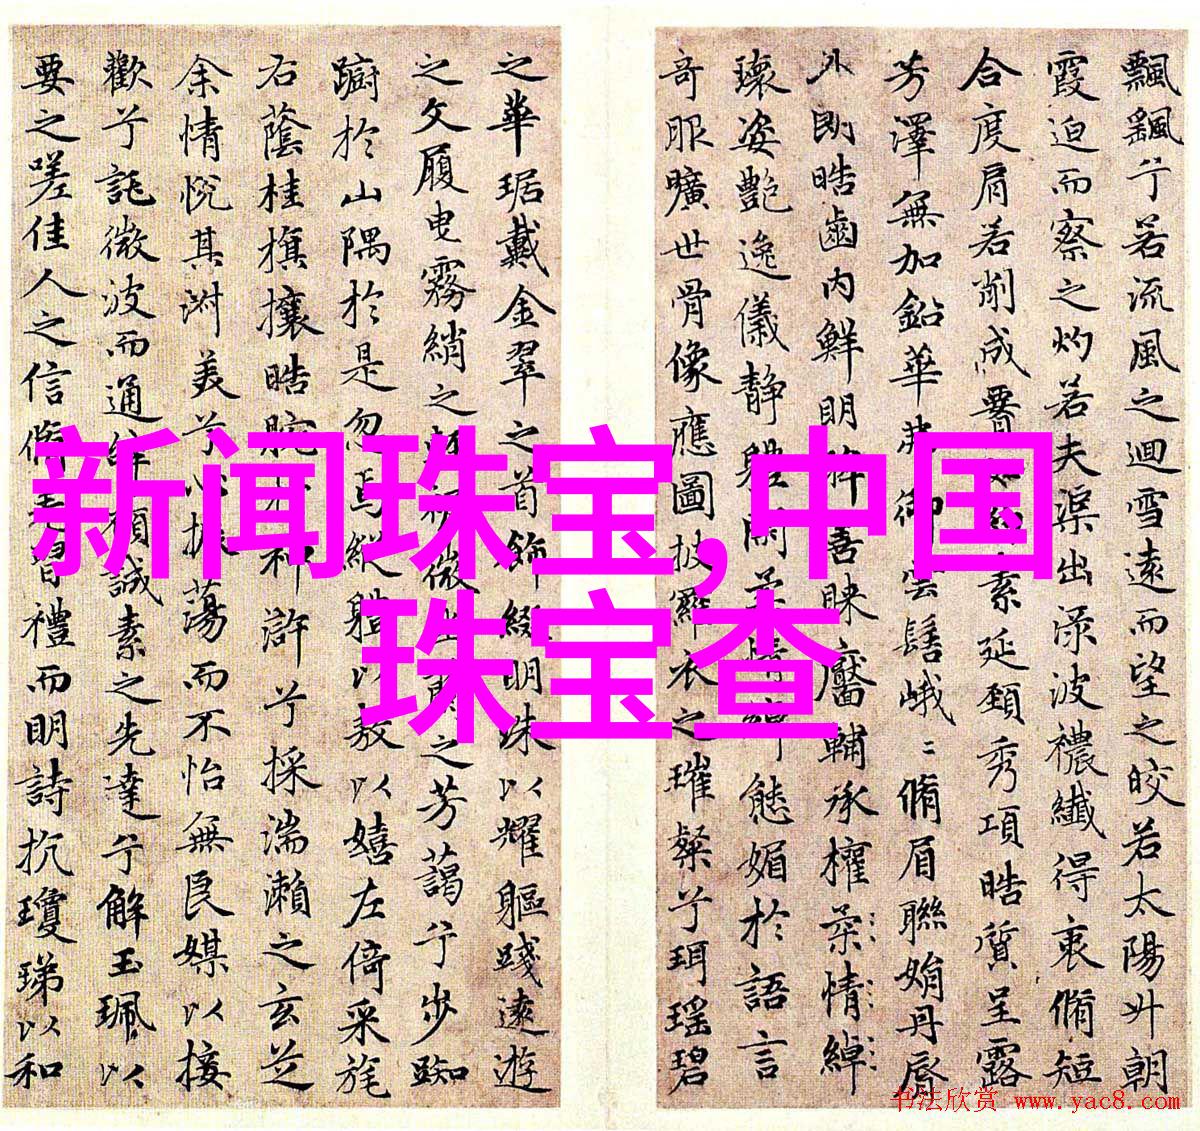 飄飖兮若流風之迴雪遠而望之皎若太陽升朝
霞迫而察之灼若夫渠出淥波穠纖得衷脩短
合度肩若削成素延頸秀項皓質呈露
芳澤無加鉛華弗御雲髻峨〻脩眉聯娟丹脣
外朗皓齒內鮮明眸善睞靨輔承權柔情綽
瓌姿艷逸儀靜體閑柔情綽態媚於語言
奇服曠世骨像應圖披羅衣之璀粲兮珥瑤碧
之華琚戴金翠之首飾綴明珠以耀軀踐遠遊
之文履曳霧綃之輕裾微之芳藹兮步踟
躕於山隅於是忽焉縱體以敖以嬉左倚采旄
右蔭桂旗攘皓腕於神滸兮採湍瀨之玄芝
余情悅其淑美兮心振蕩而不怡無良媒以接
歡兮託微波而通辭願誠素之先達兮解玉珮以
要之嗟佳人之信脩羌習禮而明詩抗瓊珶以和
新闻珠宝,中国
珠宝查
书法欣赏 www.yac8.com